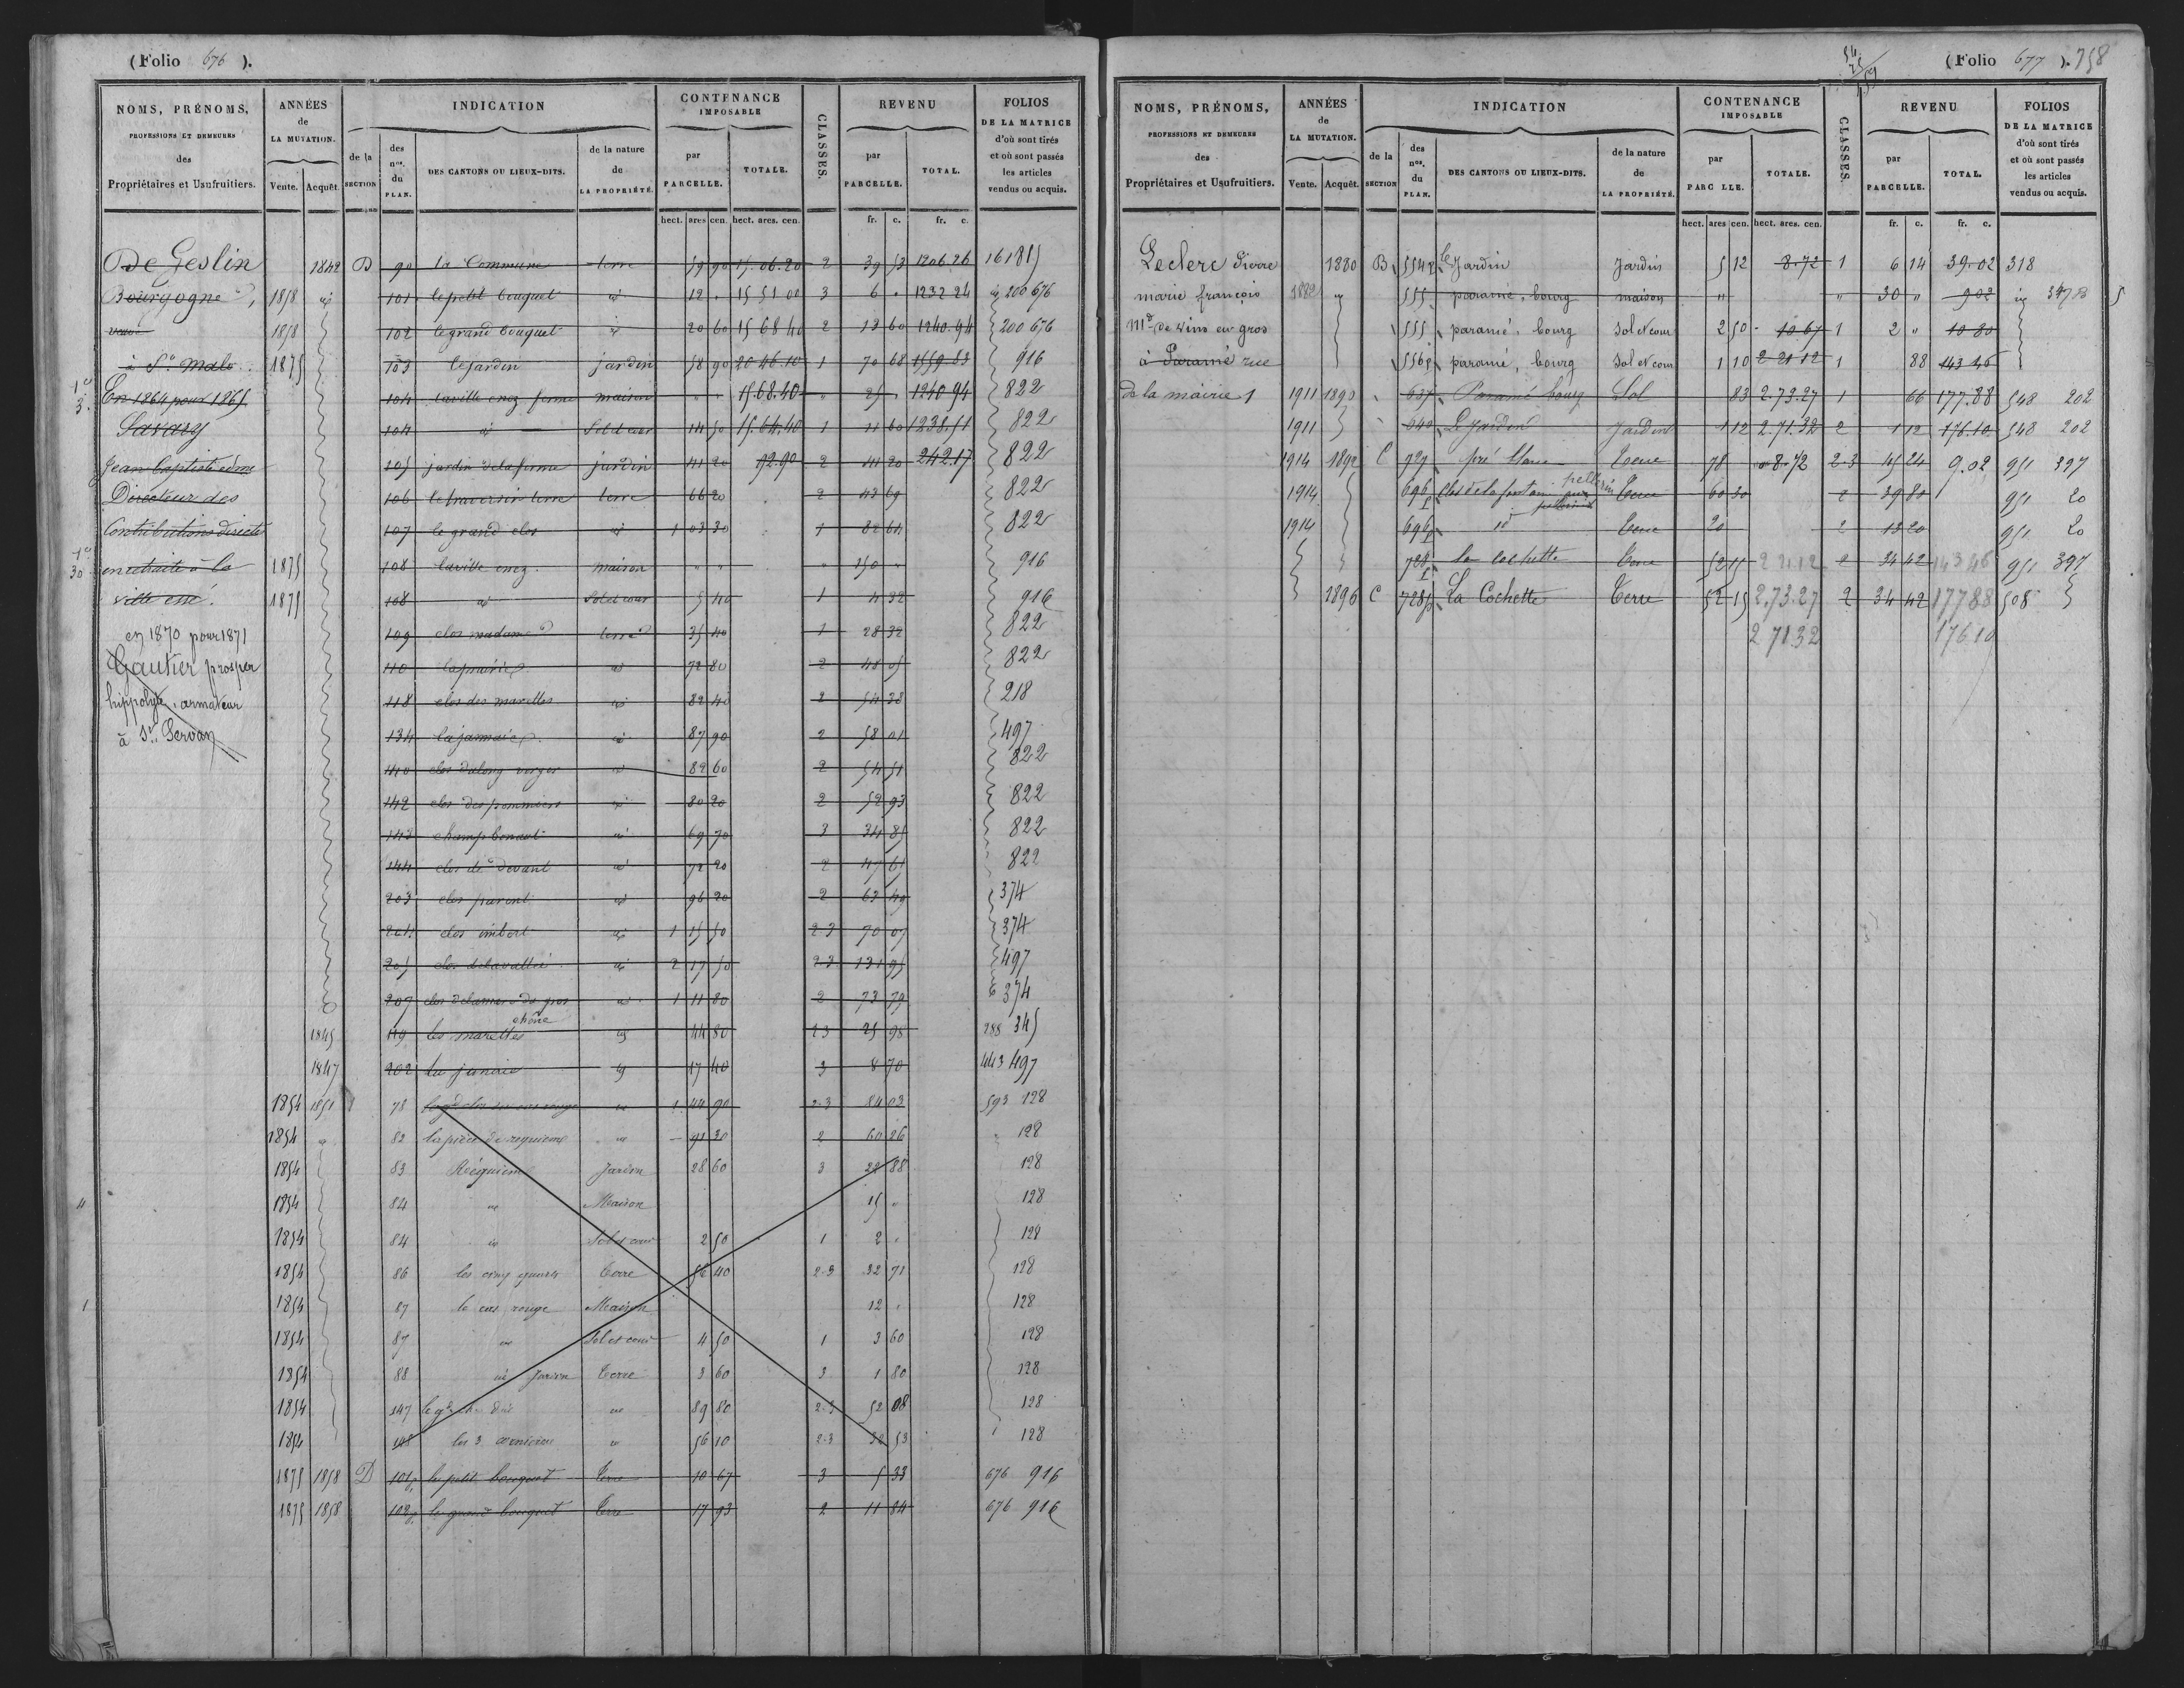 (Folio 676 ).
NOMS, PRÉNOMS,
PROFESSIONS ET DEMEURES
des
Propriétaires et Usufruitiers.
ANNÉES
de
LA MUTATION.
Vente. Acquêt.
INDICATION
de la
SECTION
des
nos.
du
PLAN.
DES CANTONS OU LIEUX-DITS.
de la nature
de
LA PROPRIÉTÉ.
CONTENANCE
IMPOSABLE
par
PARCELLE.
TOTALE.
hect. ares cen. hect. ares. cen.
CLASSES.
REVENU
par
PARCELLE.
TOTAL.
fr. c. fr. c.
FOLIOS
DE LA MATRICE
d'où sont tirés
et où sont passés
les articles
vendus ou acquis.
De Geslin
Bourgogne
à St Malo
En 1864 pour 1865
Savary
Jean Baptiste
Directeur des
Contributions directes
en retraite à la
ville
en 1870 pour 1871
Gautier prosper
hippolyte, armateur
à St Servan
1842 D 90 la Commune terre 59 90 15.06.20 2 39 53 1206.26 16 185
1858 id 101 le petit bouquet id 12 " 15 51 00 3 6 " 1232 24 id 200 676
1858 102 le grand bouquet id 20 60 15 68 40 2 13 60 1240.94 200 676
1875 103 le jardin jardin 58 90 20 46 10 1 70 68 1559 83 916
104 la ville enez ferme maison " " 15.68.40 " 25 " 1240 94 822
104 id Sol et cour 14 50 15.64.40 1 11 60 1238.51 822
105 jardin de la ferme jardin 41 20 92.90 2 41 20 242.17 822
106 le traversin terre 66 20 2 43 69 822
107 le grand clos id 1 03 30 1 82 64 822
1875 108 la ville enez maison " " " 150 " 916
1875 108 id Sol et cour 5 40 1 4 32 916
109 clos madame terre 35 40 1 28 32 822
110 la prairie id 72 80 2 48 05 822
118 clos des marettes id 82 40 2 54 38 218
134 la jannaie id 87 90 2 58 01 497
140 clos du long verger id 82 60 2 54 51 822
142 clos des pommiers id 80 20 2 52 93 822
143 champ bonault id 69 70 3 34 85 822
144 clos de devant id 72 20 2 47 65 822
203 clos parent id 96 20 2 63 49 374
204 clos imbert id 1 15 50 2 3 70 07 374
205 id 2 17 50 2 3 131 95 497
207 chêne id 1 11 80 2 73 79 374
1845 119 les marettes id 44 80 2 3 25 98 288 345
1847 202 la janaie id 17 40 3 8 70 443 497
1854 1851 78 id 1 44 90 2-3 84 03 593 128
1854 82 la pièce de requiem id 91 30 2 60 26 128
1854 83 Réquiem jardin 28 60 3 22 88 128
1854 84 id Maison 15 " 128
1854 84 id Sol et cour 2 50 1 2 " 128
1854 86 les cinq quarts terre 56 40 2-3 32 71 128
1854 87 le cas rouge Maison 12 " 128
1854 87 id Sol et cour 4 50 1 3 60 128
1854 88 id jardin terre 3 60 3 1 80 128
1854 147 id 89 80 2-3 52 08 128
1854 148 les 3 id 56 10 2-3 32 53 128
1875 1858 D 101p le petit bouquet terre 10 67 3 5 33 676 916
1875 1858 102p le grand bouquet terre 17 93 2 11 84 676 916
(Folio 677 ). 758
NOMS, PRÉNOMS,
PROFESSIONS ET DEMEURES
des
Propriétaires et Usufruitiers.
ANNÉES
de
LA MUTATION.
Vente. Acquêt.
INDICATION
de la
SECTION
des
nos.
du
PLAN.
DES CANTONS OU LIEUX-DITS.
de la nature
de
LA PROPRIÉTÉ.
CONTENANCE
IMPOSABLE
par
PARC LLE.
TOTALE.
hect. ares cen. hect. ares. cen.
CLASSES.
REVENU
par
PARCELLE.
TOTAL.
fr. c. fr. c.
FOLIOS
DE LA MATRICE
d'où sont tirés
et où sont passés
les articles
vendus ou acquis.
Leclerc Pierre
marie françois
Md de vins en gros
à Paramé rue
de la mairie 1
1880 B 554p le Jardin Jardin 5 12 8.72 1 6 14 39.02 318
1882 id 555 paramé, bourg maison " " 30 " 9 02 id 347
555 paramé, bourg Sol et cour 2 50 10 67 1 2 " 10 80
556p paramé, bourg Sol et cour 1 10 2 21 12 1 88 143 46
1911 1890 637 Paramé bourg Sol 83 2.73.27 1 66 177.88 548 202
1911 640 Le Jardin Jardin 1 12 2.71.32 2 1 12 176.10 548 202
1914 1892 C 727 pré terre 78 8.72 2-3 45 24 9.02 951 397
1914 696p clos de la fontaine pellerin terre 60 30 2 39 80 951 20
1914 696p id terre 20 2 13 20 951 20
728p la cochette terre 52 15 2 21.12 2 34 42 143 46 951 397
1896 C 728p La Cochette Terre 52 15 2.73.27 2 34 42 177 88 508
2 71.32 176.10